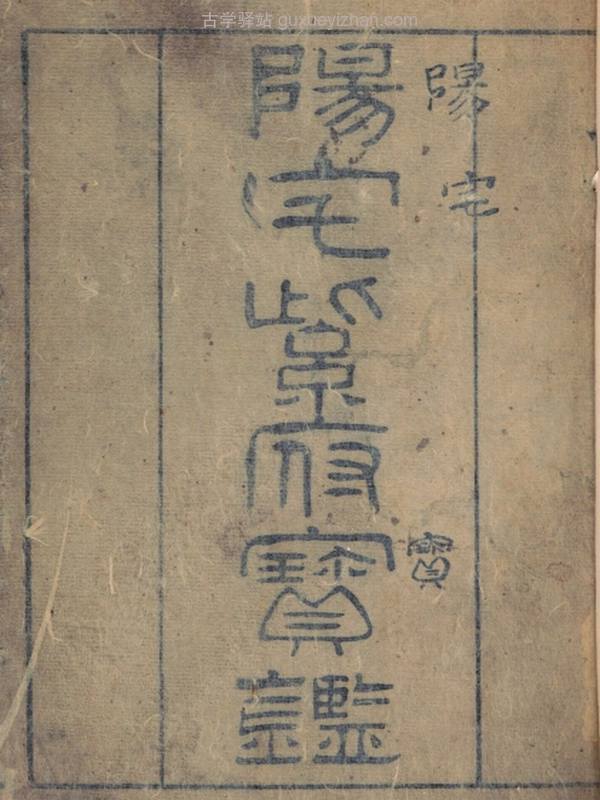 古学驿站 guxueyizhan.com
陽宅
寶
陽宅紫府寶鑑